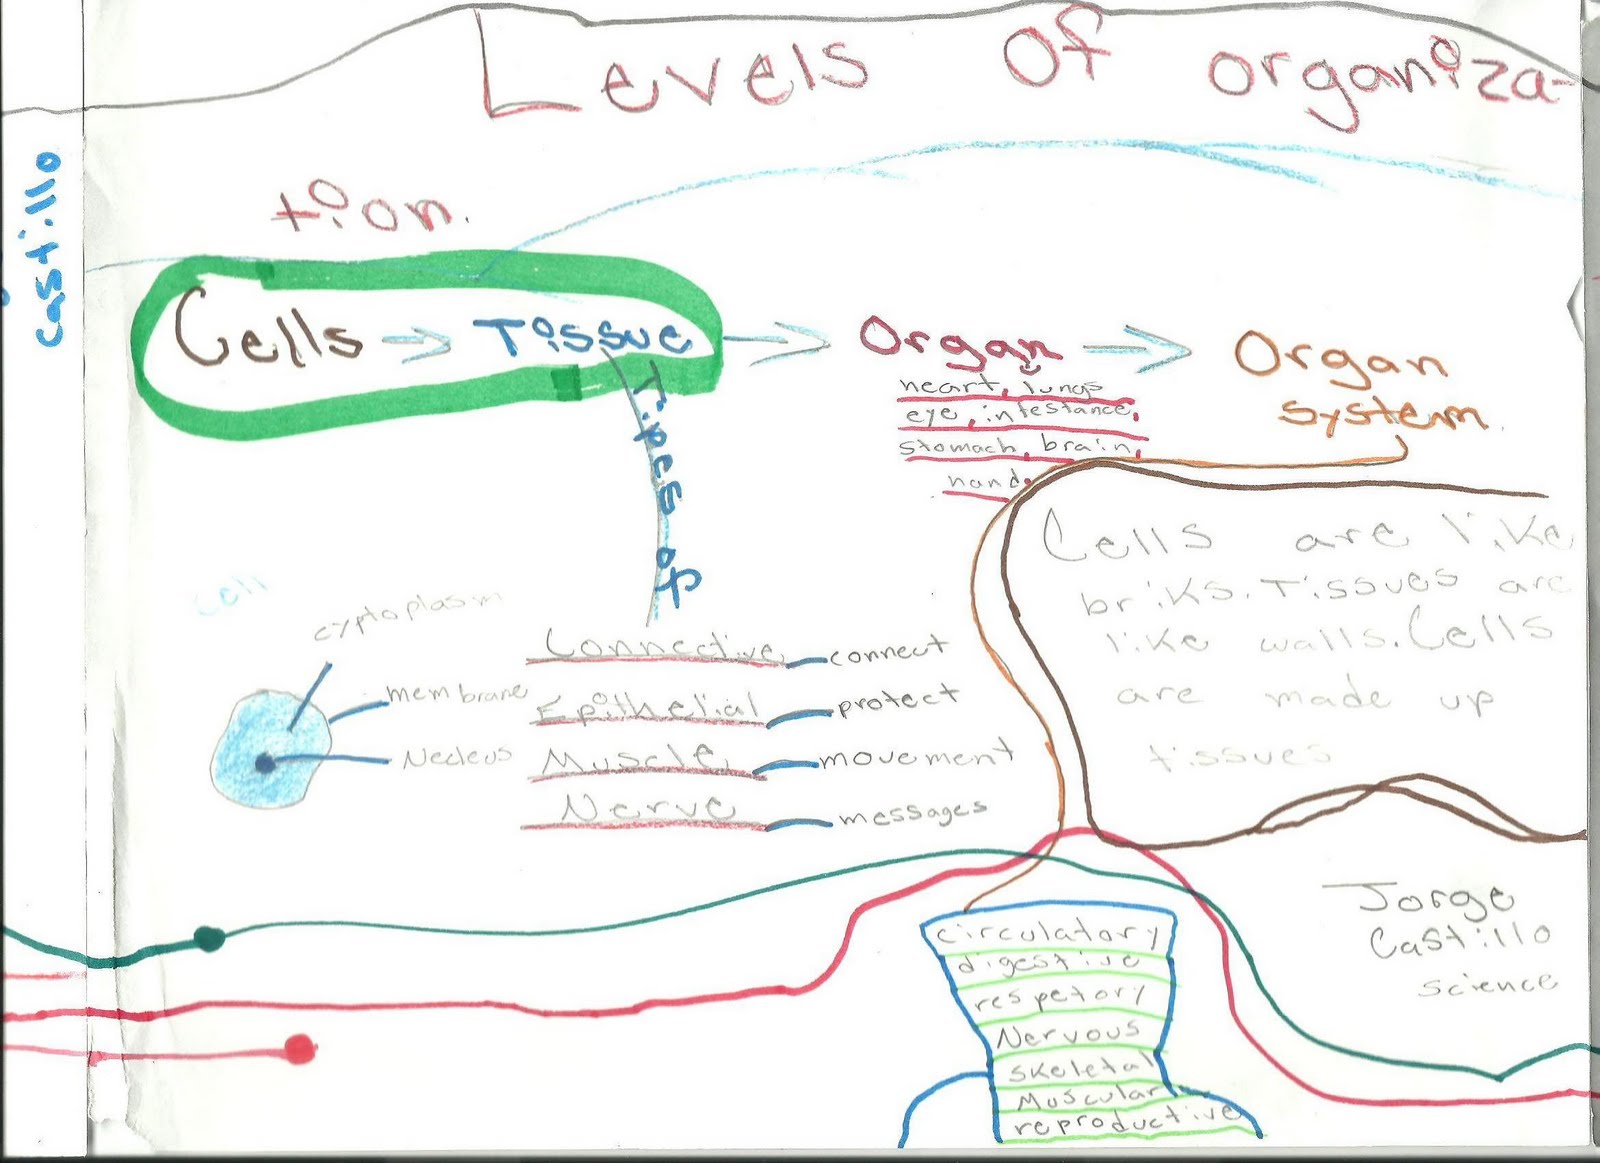 Levels Of organiza-
tion.
castillo
Cells → Tissue → Organ → Organ
system.
heart, lungs
eye, intestance,
stomach, brain,
hand.
Tipes of
Cells are like
briks. Tissues are
like walls. Cells
are made up
tissues
cell
cyptoplasm
membrane
Necleus
Connective connect
Epithelial protect
Muscle movement
Nerve messages
Jorge
Castillo
science
circulatory
digestive
respetory
Nervous
skeletal
Muscular
reproductive